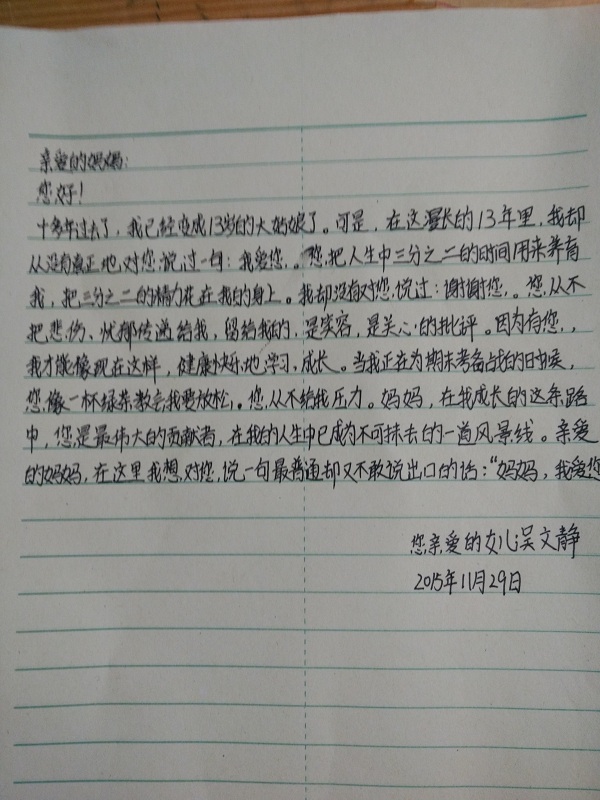 亲爱的妈妈：
您好！
十多年过去了，我已经变成13岁的大姑娘了。可是，在这漫长的13年里，我却
从没有真正地对您说过一句：我爱您。您把人生中三分之二的时间用来养育
我，把三分之二的精力花在我的身上。我却没有对您说过：谢谢您。您从不
把悲伤、忧郁传递给我，留给我的，是笑容，是关心的批评。因为有您，
我才能像现在这样，健康快乐地学习，成长。当我正在为期末考备战的时候，
您像一杯绿茶教会我要放松。您从不给我压力。妈妈，在我成长的这条路
中，您是最伟大的贡献者，在我的人生中已成为不可抹去的一道风景线。亲爱
的妈妈，在这里我想对您说一句最普通却又不敢说出口的话：“妈妈，我爱您
您亲爱的女儿吴文静
2015年11月29日